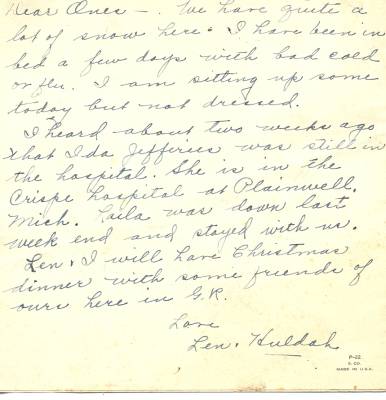 Dear Ones - . We have quite a
lot of snow here. I have been in
bed a few days with bad cold
or flu. I am sitting up some
today but not dressed.
I heard about two weeks ago
that Ida Jefferies was still in
the hospital. She is in the
Crispe hospital at Plainwell,
Mich. Laila was down last
week end and stayed with us.
Len & I will have Christmas
dinner with some friends of
ours here in G.R.
Love
Len & Huldah
P-22
S. CO.
MADE IN U.S.A.